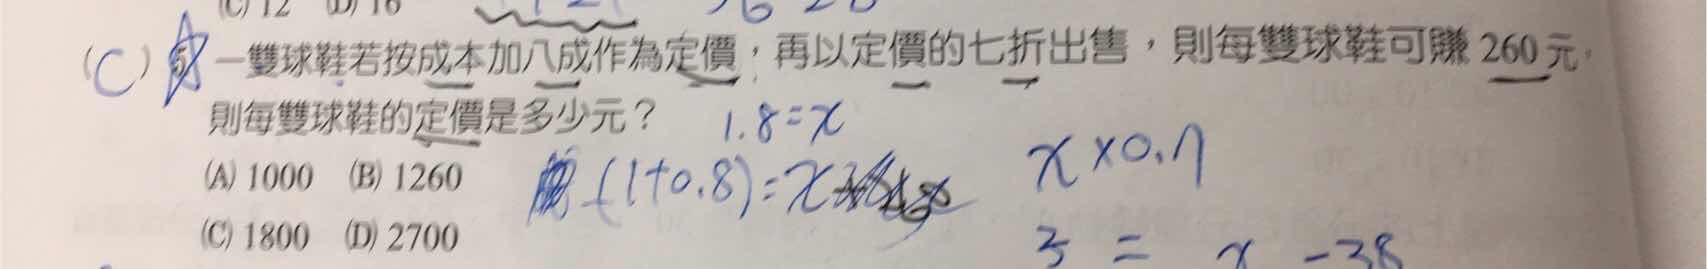 (C) 12 (D) 16
(C) 5. 一雙球鞋若按成本加八成作為定價，再以定價的七折出售，則每雙球鞋可賺 260 元，
則每雙球鞋的定價是多少元？
1.8=x
(A) 1000 (B) 1260
(1+0.8)=x
x×0.7
(C) 1800 (D) 2700
3 = x -38